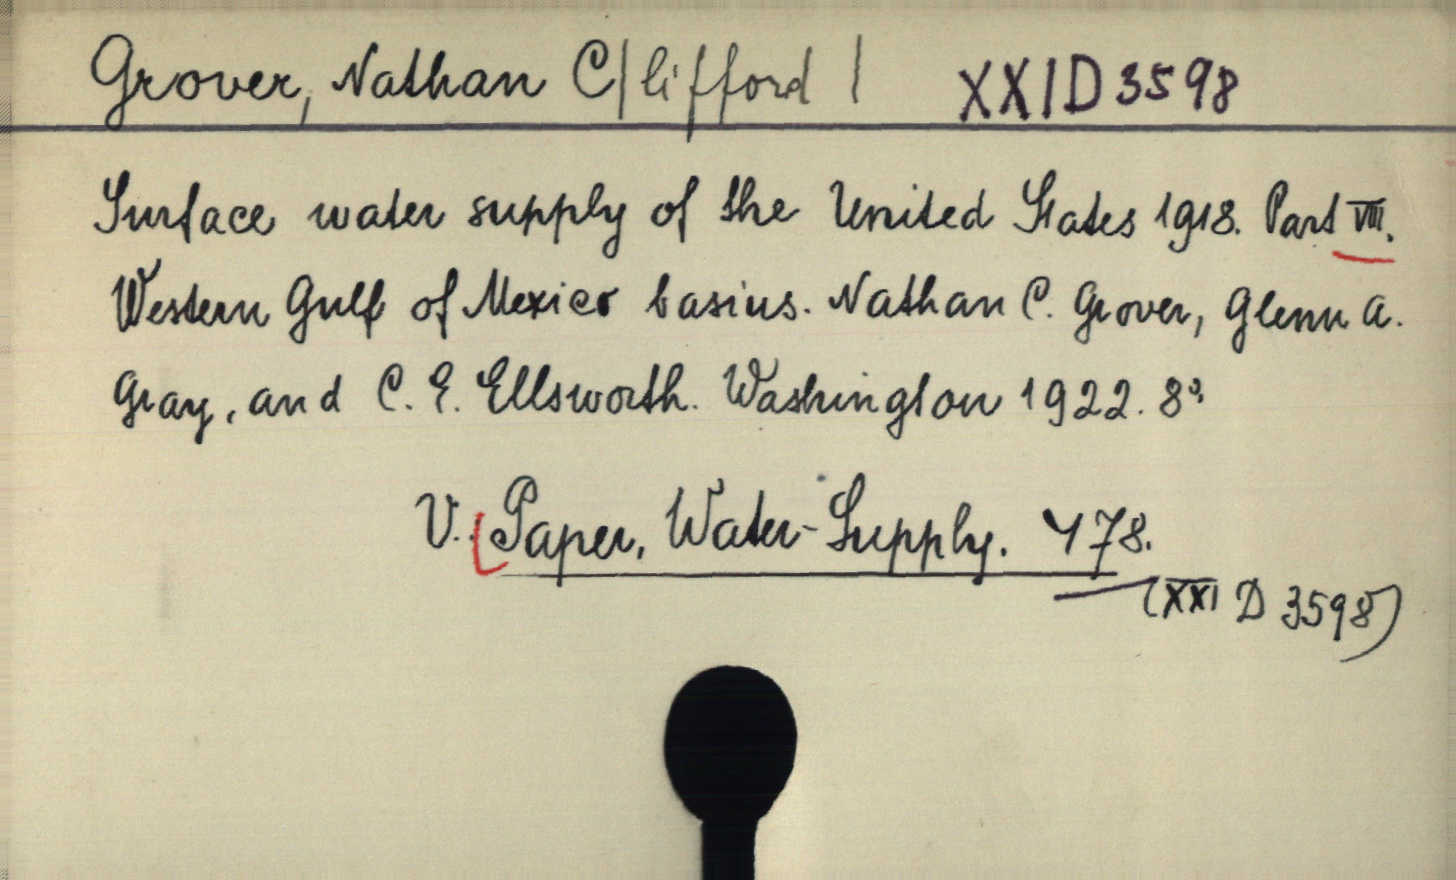 Grover, Nathan C|lifford| XXI D 3598
Surface water supply of the United States 1918. Part VIII.
Western Gulf of Mexico basins. Nathan C. Grover, Glenn A.
Gray, and C. E. Ellsworth. Washington 1922. 8°.
V. [Paper, Water-Supply. 478.
(XXI D 3598)